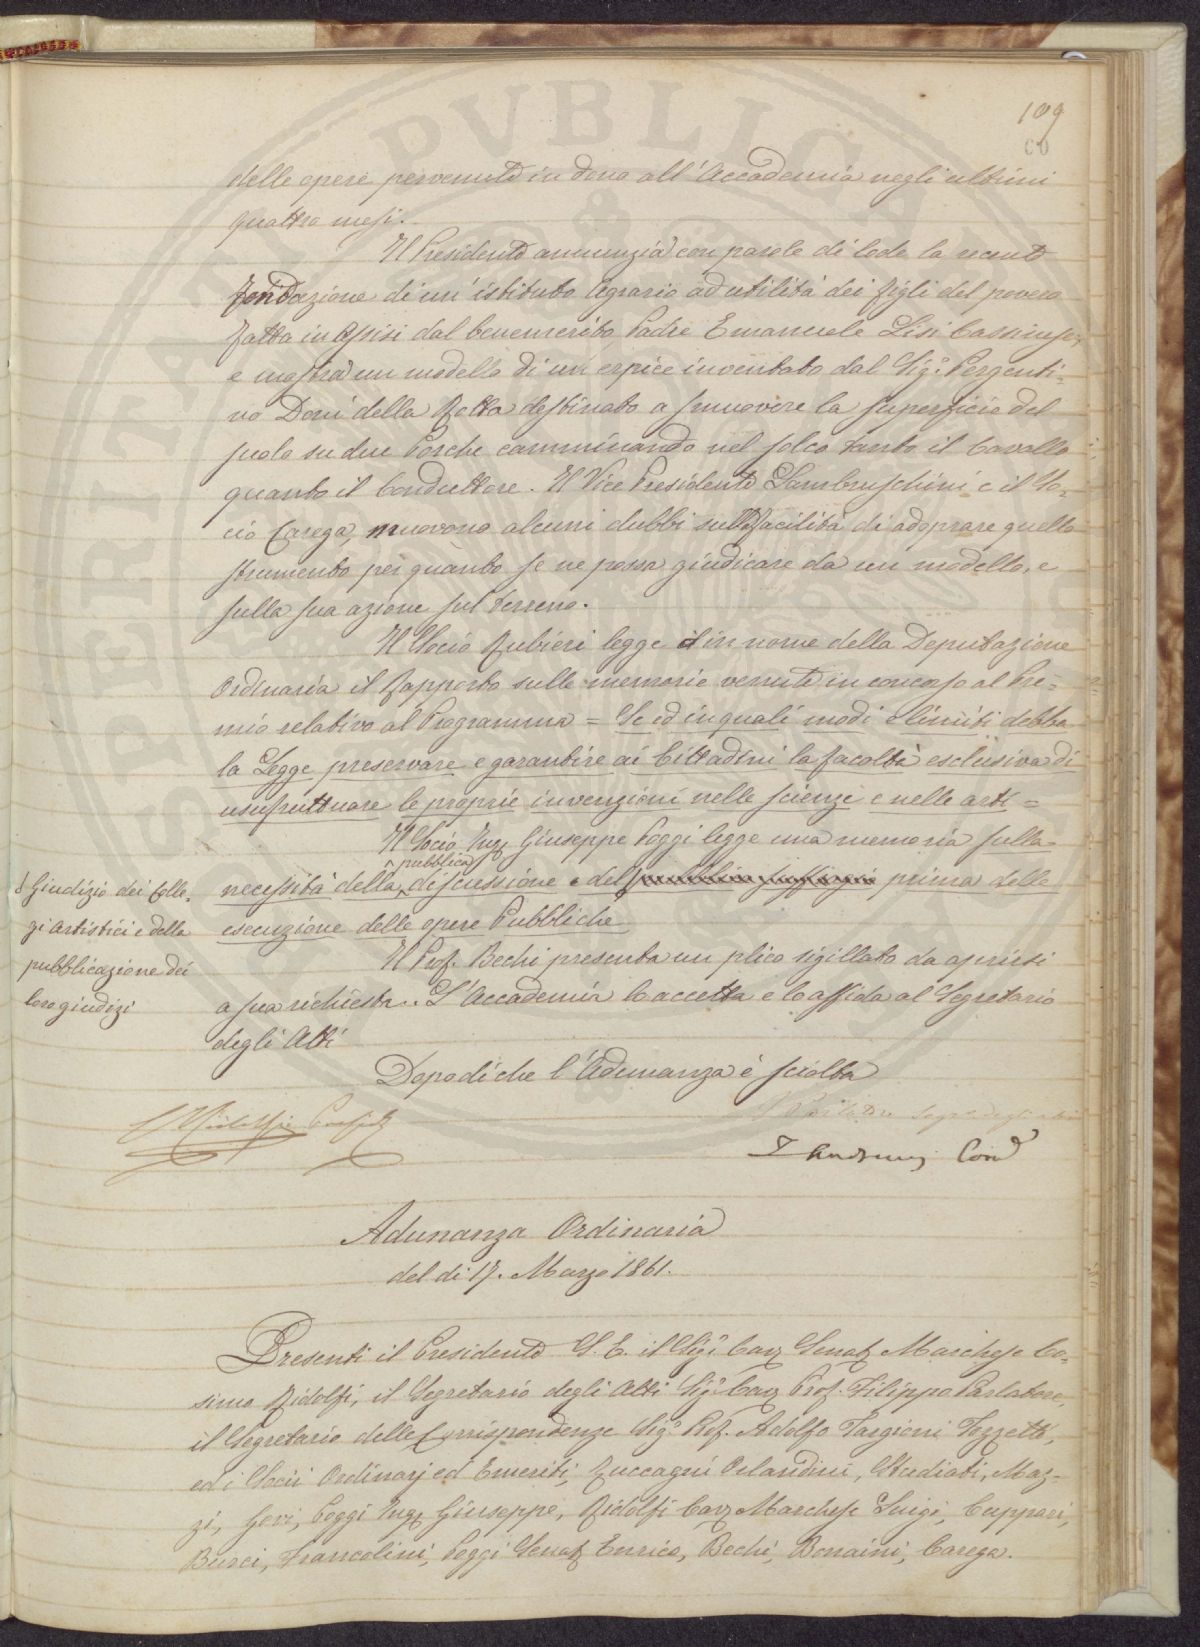 109
60
delle opere pervenute in dono all'Accademia negli ultimi
quattro mesi.
Il Presidente annunzia con parole di lode la recente
fondazione di un'istituto Agrario ad utilità dei figli del povero
fatta in Assisi dal benemerito Padre Emanuele Lisi
e mostra un modello di un erpice inventato dal Sig.r Pergenti-
no Doni della Rotta destinato a smuovere la superficie del
suolo su due Porche camminando nel solco tanto il Cavallo
quanto il Conduttore. Il Vice Presidente Lambruschini e il So-
cio Carega, muovono alcuni dubbi sulla facilità di adoprare quello
strumento per quanto se ne possa giudicare da un modello, e
sulla sua azione sul terreno.
Il Socio Rubieri legge in nome della Deputazione
Ordinaria il Rapporto sulle memorie venute in concorso al Pre-
mio relativo al Programma = Se ed in quali modi e limiti debba
la Legge preservare e garantire ai Cittadini la facoltà esclusiva di
usufruttuare le proprie invenzioni nelle scienze e nelle arti =
Il Socio Ing.r Giuseppe Poggi legge una memoria sulla
necessità della pubblica discussione e del prima della
esecuzione delle opere Pubbliche
Giudizio dei Colle-
gi artistici e della
pubblicazione dei
loro giudizi
Il Prof. Bechi presenta un plico sigillato da aprirsi
a sua richiesta. L'Accademia lo accetta e lo affida al Segretario
degli Atti
Dopodiche l'Adunanza è sciolta
C. Ridolfi Presid.te
F. Parlatore Segr. degli atti
Adunanza Ordinaria
del dì 17. Marzo 1861.
Presenti il Presidente S. E. il Sig.r Cav.r Senat.r Marchese Co-
simo Ridolfi, il Segretario degli Atti Sig.r Cav.r Prof. Filippo Parlatore,
il Segretario delle Corrispondenze Sig.r Prof. Adolfo Targioni Tozzetti,
ed i Socii Ordinarj ed Emeriti, Zuccagni Orlandini, Studiati, Maz-
zi, Govi, Poggi Ing.r Giuseppe, Ridolfi Cav.r Marchese Luigi, Cuppari,
Burci, Francolini, Poggi Senat.r Enrico, Bechi, Bonaini, Carega.